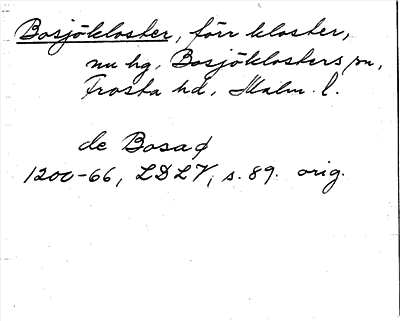 Bosjökloster, förr kloster,
nu hg, Bosjöklosters sn,
Frosta hd, Malm. l.
de Bosaø
1200-66, LDLV, s. 89. orig.